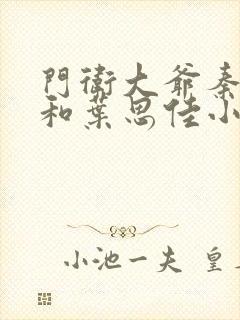 門衛大爺秦
和葉思佳小
小池一夫 皇